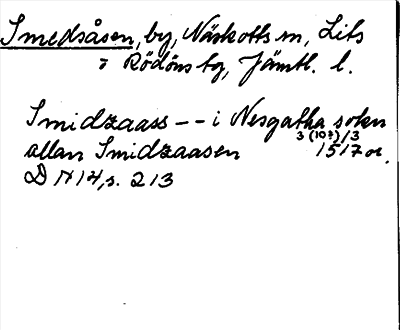 Smedsåsen, by, Näskotts sn, Lits
o Rödöns tg, Jämtl. l.
Smidzaass -- i Nesgatha sokn
3 (10?)/3
allan Smidzaasen 1517 or.
D N 14, s. 213